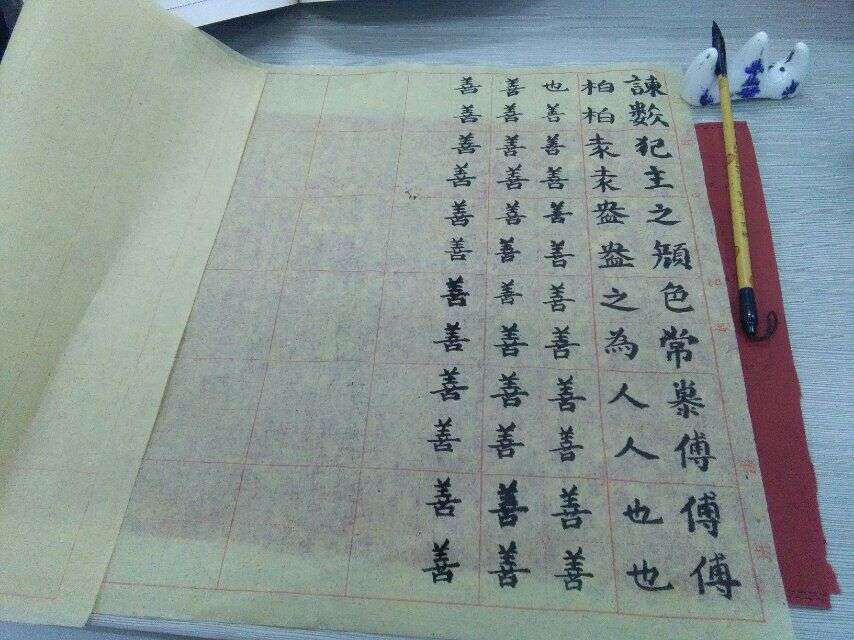 諫數犯主之顏色常慕傅傅傅
柏柏袁袁盎盎之為人人也也
也善善善善善善善善善善善
善善善善善善善善善善善善
善善善善善善善善善善善善